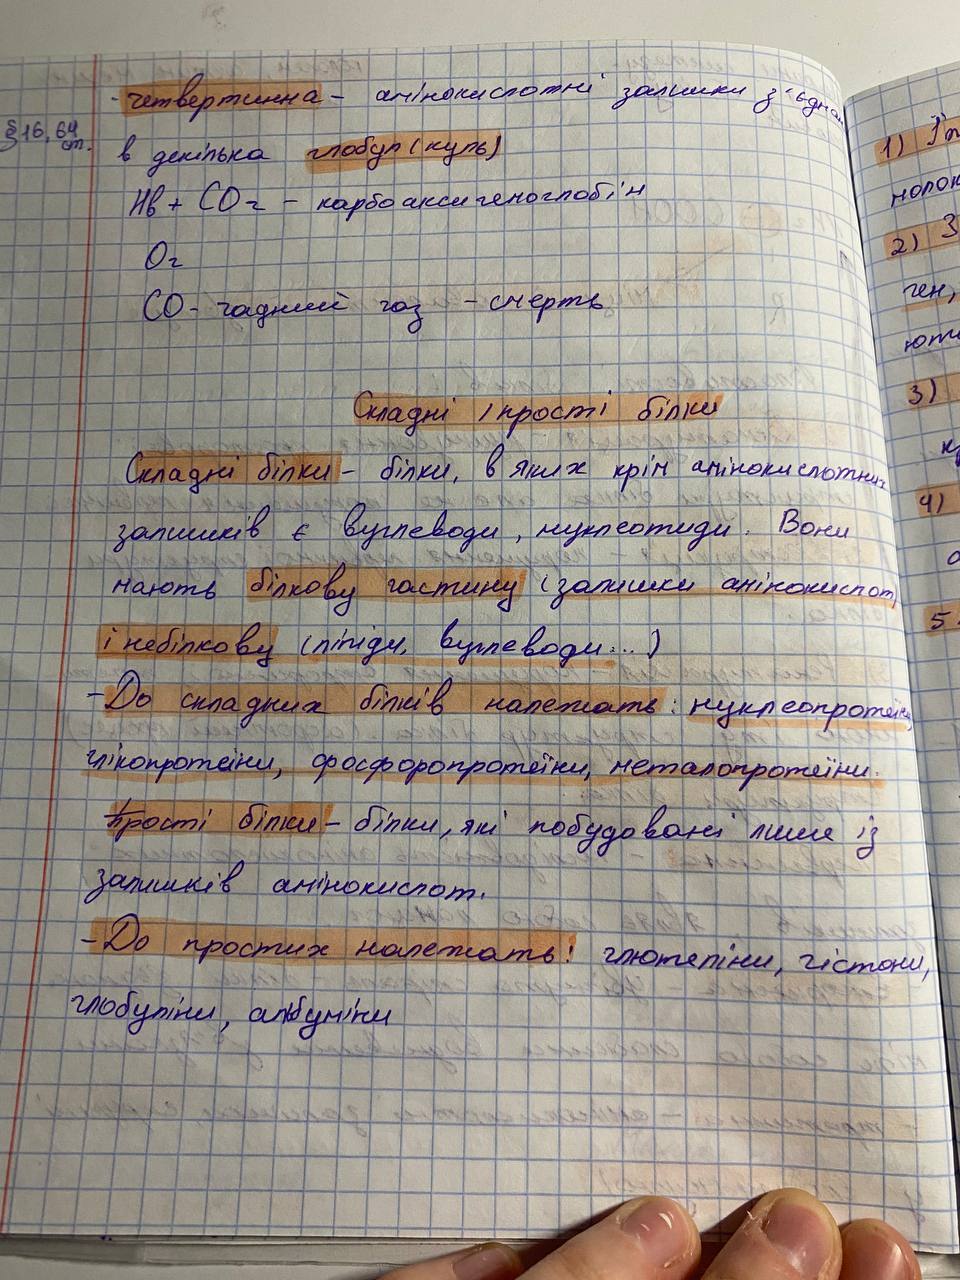 - четвертинна - амінокислотні залишки з'єднан
§16, 64 ст.
в декілька глобул (куль)
Hb + CO2 - карбоаксигеноглобін
O2
CO - чадний газ - смерть
Складні і прості білки
Складні білки - білки, в яких крім амінокислотних
залишків є вуглеводи, нуклеотиди. Вони
мають білкову частину (залишки амінокислот)
і небілкову (ліпіди, вуглеводи...)
- До складних білків належать: нуклеопротеїни,
глікопротеїни, фосфоропротеїни, металопротеїни.
Прості білки - білки, які побудовані лише із
залишків амінокислот.
- До простих належать: глютеліни, гістони,
глобуліни, альбуміни
1)
2) З
ген,
3)
4)
5.